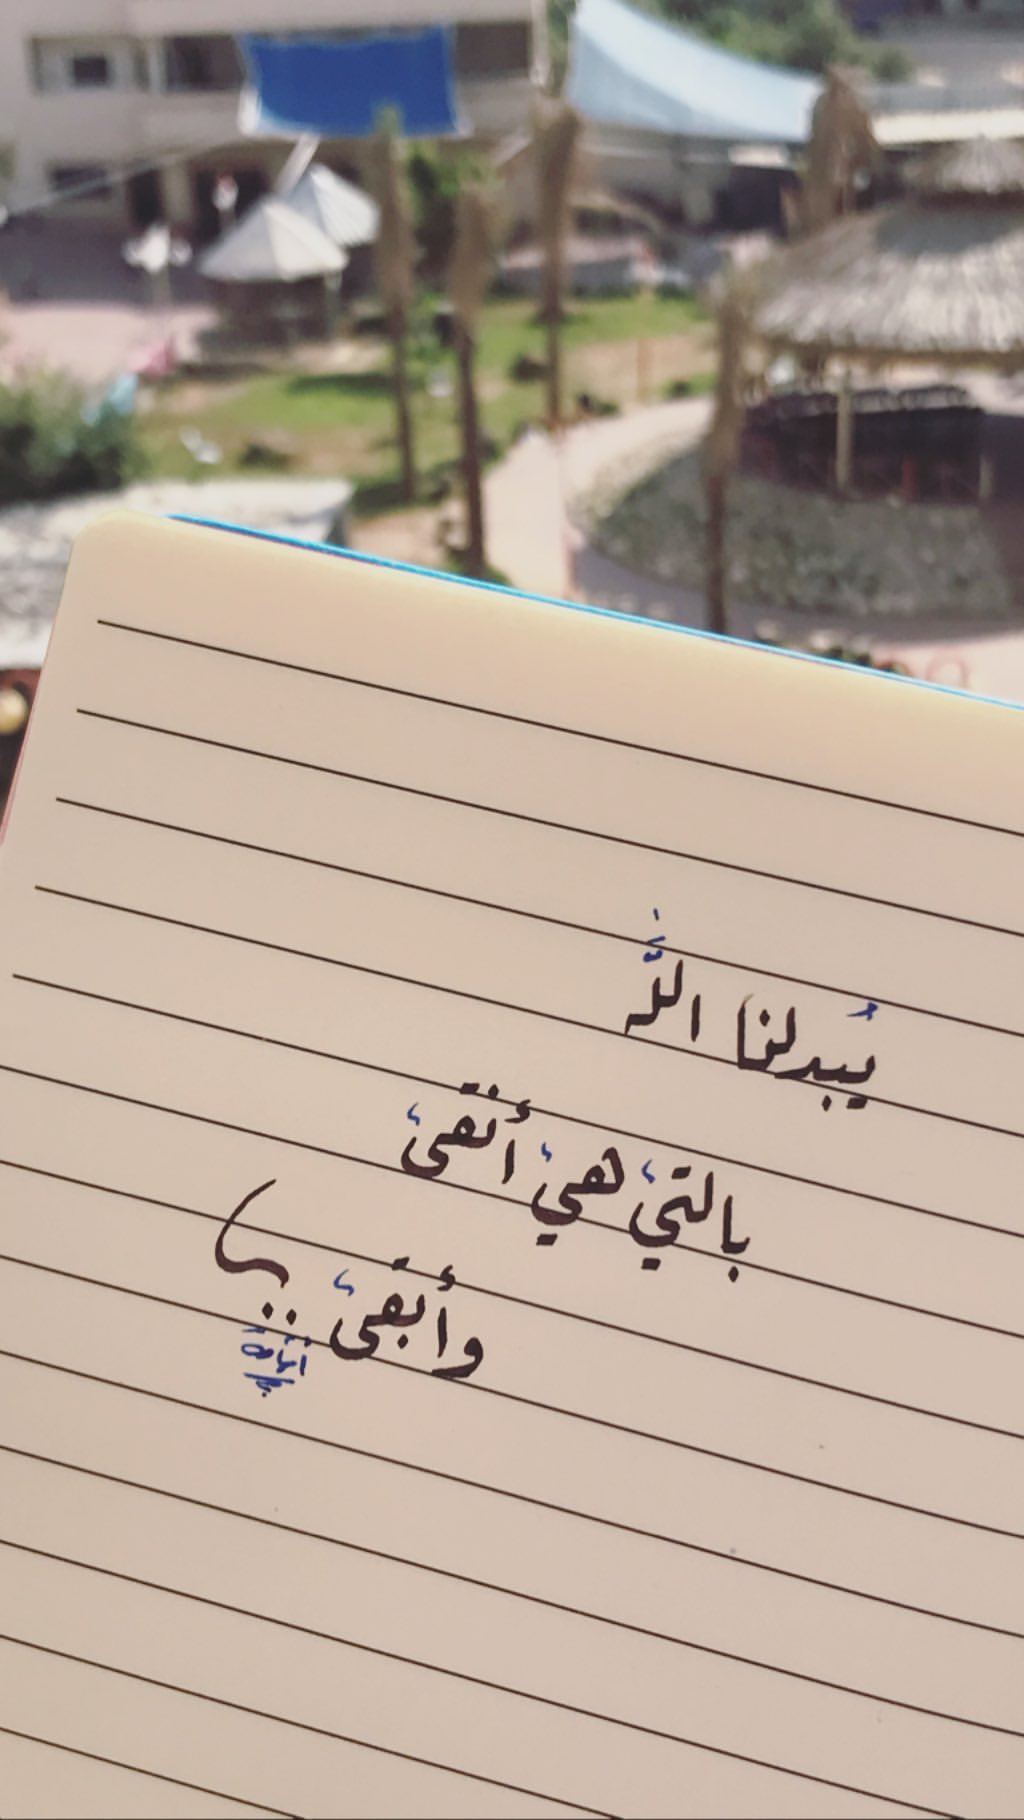 يُبدلنا اللَّه
بالتي هي أنقى
وأبقى ..